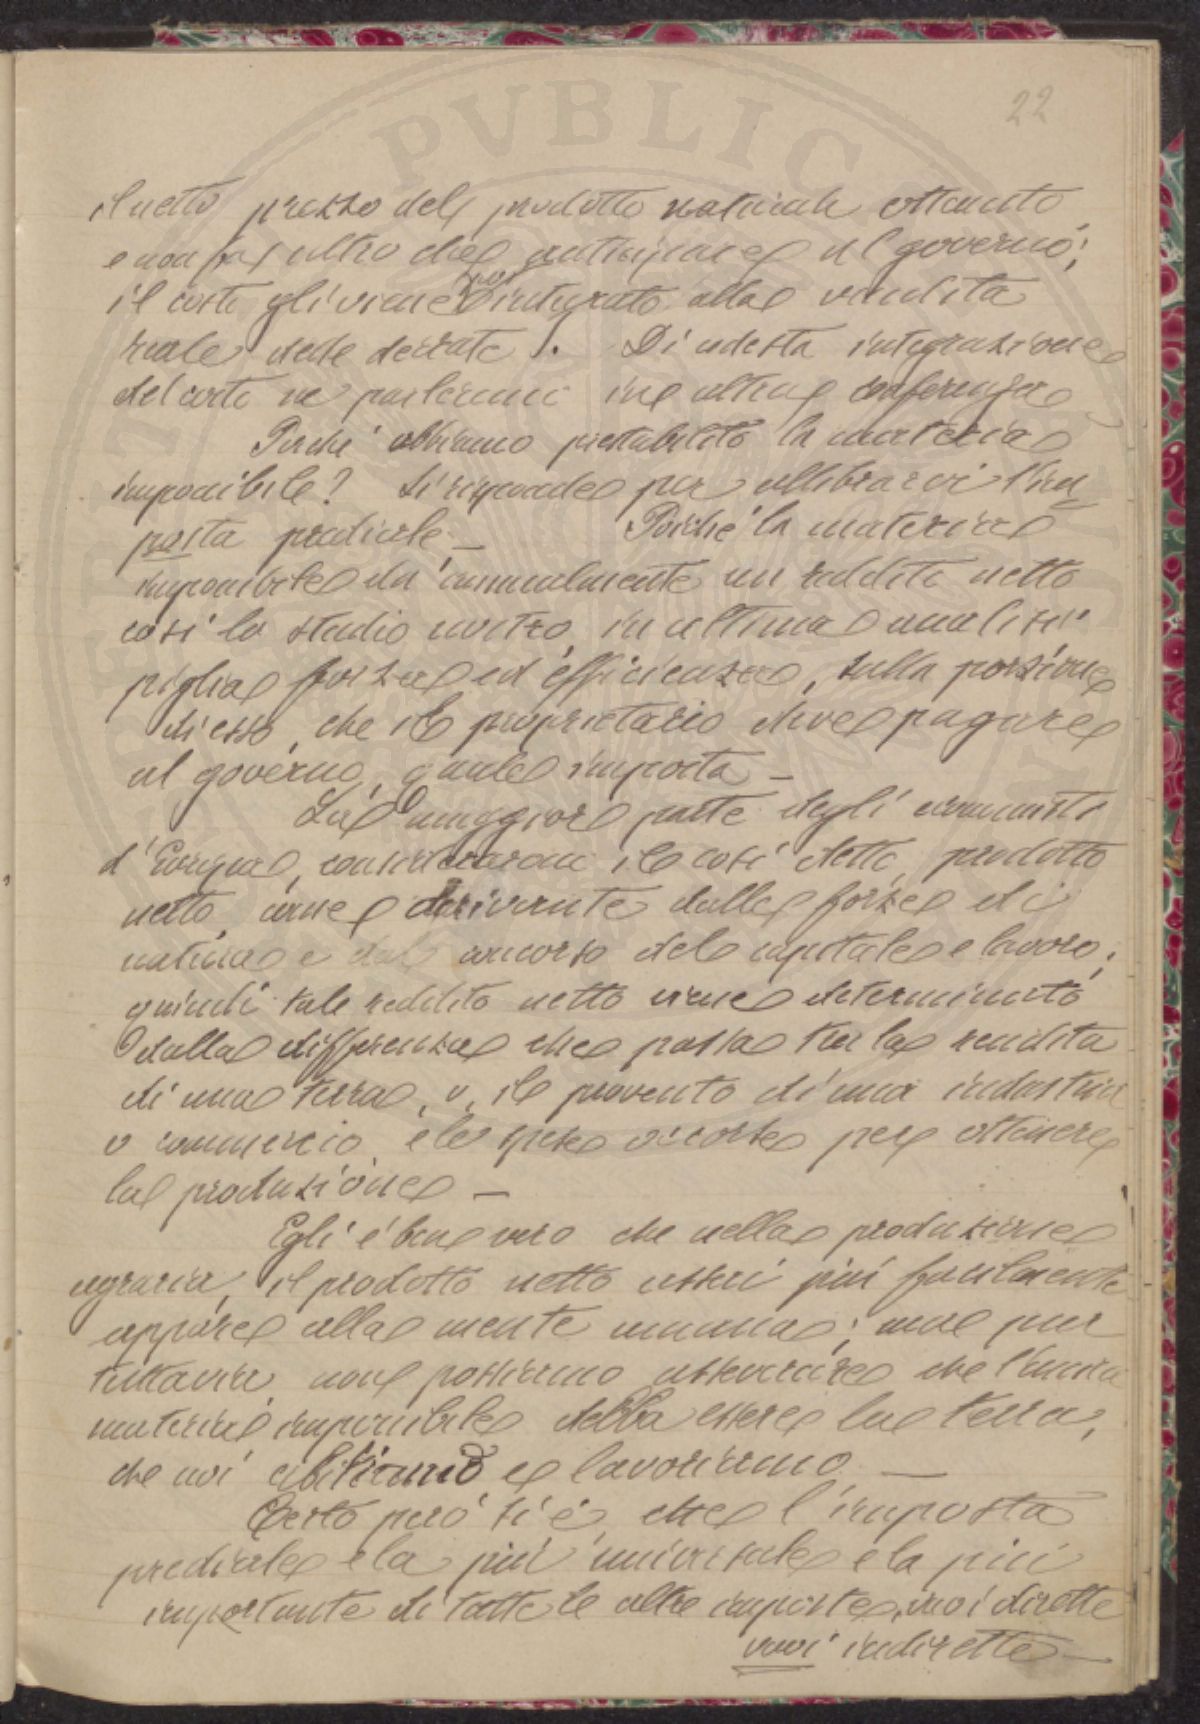 22
il netto prezzo del prodotto naturale ottenuto
e non fa altro che anticipare al governo;
il costo gli viene poi integrato alla vendita
reale delle derrate. Di codesta integrazione
del costo ne parleremo in altra conferenza
Perché abbiamo prestabilito la materia
imponibile? Si risponde per allibrarvi l'im
posta prediale — Poiché la materia
imponibile dà annualmente un reddito netto
così lo studio nostro, in ultima analisi
piglia forza ed efficienza, sulla porzione
di esso, che il proprietario deve pagare
al governo, quale imposta —
La maggior parte degli economisti
d'Europa, considerarono il così detto, prodotto
netto, come derivante dalle forze di
natura e dal concorso del capitale e lavoro;
quindi tale reddito netto viene determinato
dalla differenza che passa tra la rendita
di una terra, o, il provento di una industria
o commercio, e le spese occorse per ottenere
la produzione —
Egli é ben vero che nella produzione
agraria, il prodotto netto assai più facilmente
appare alla mente umana; ma pur
tuttavia, non possiamo asseverare che l'unica
materia imponibile debba essere la terra,
che noi abitiamo e lavoriamo —
Certo però si é, che l'imposta
prediale é la più universale e la più
importante di tutte le altre imposte, vuoi dirette
vuoi indirette —
PVBLIC